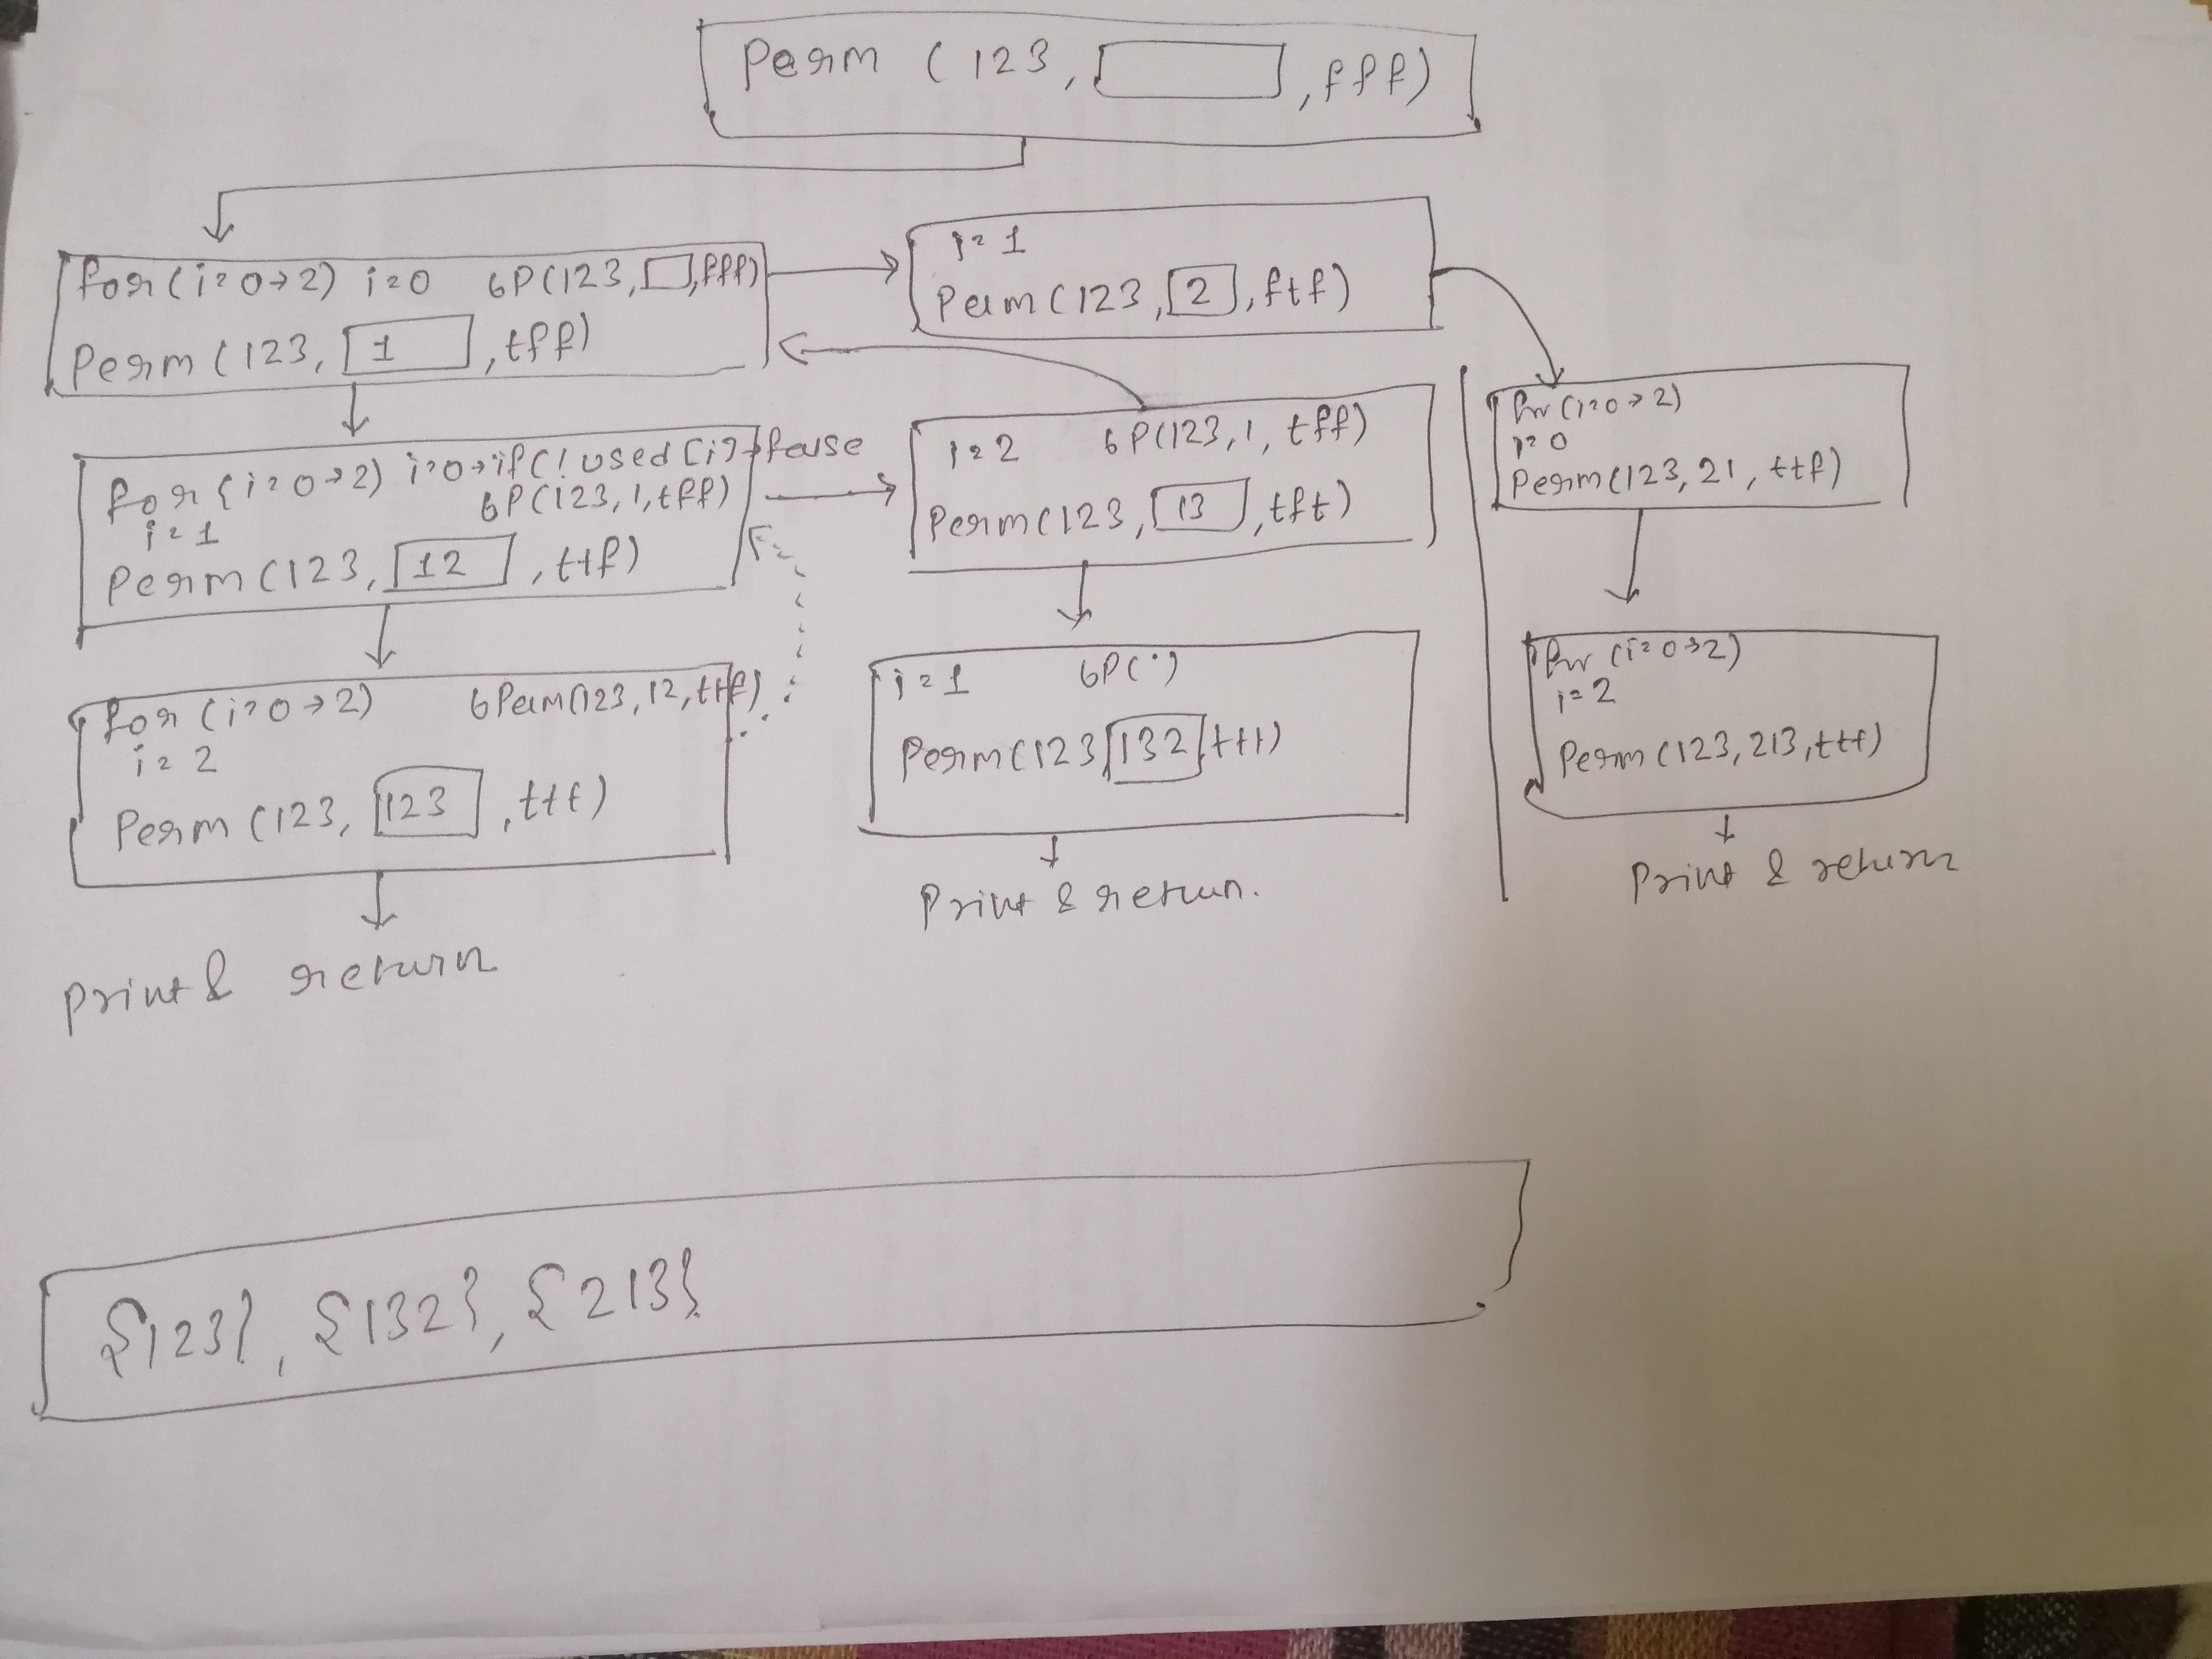 Perm (123, , fff)
for(i=0→2) i=0 6P(123, ,fff)
Perm (123, 1 , tff)
i=1
Perm (123, 2 , ftf)
for (i=0→2) i=0→if(! used[i]→false
6P(123,1,tff)
i=1
Perm (123, 12 , ttf)
i=2 6P(123,1,tff)
Perm(123, 13 , tft)
for (i=0→2)
i=0
Perm(123,21,ttf)
for (i=0→2) 6Perm(123,12,ttf)
i=2
Perm (123, 123 , ttt)
print & return
i=1 6P(')
Perm(123, 132, ttt)
Print & return.
for (i=0→2)
i=2
Perm (123,213,ttt)
Print & return
{123}, {132}, {213}